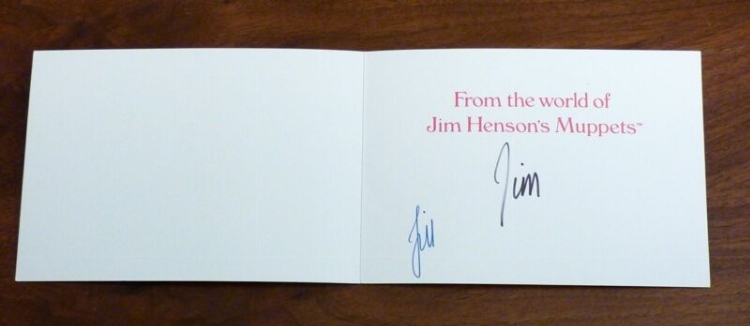 From the world of
Jim Henson's Muppets™
Jim
Jill